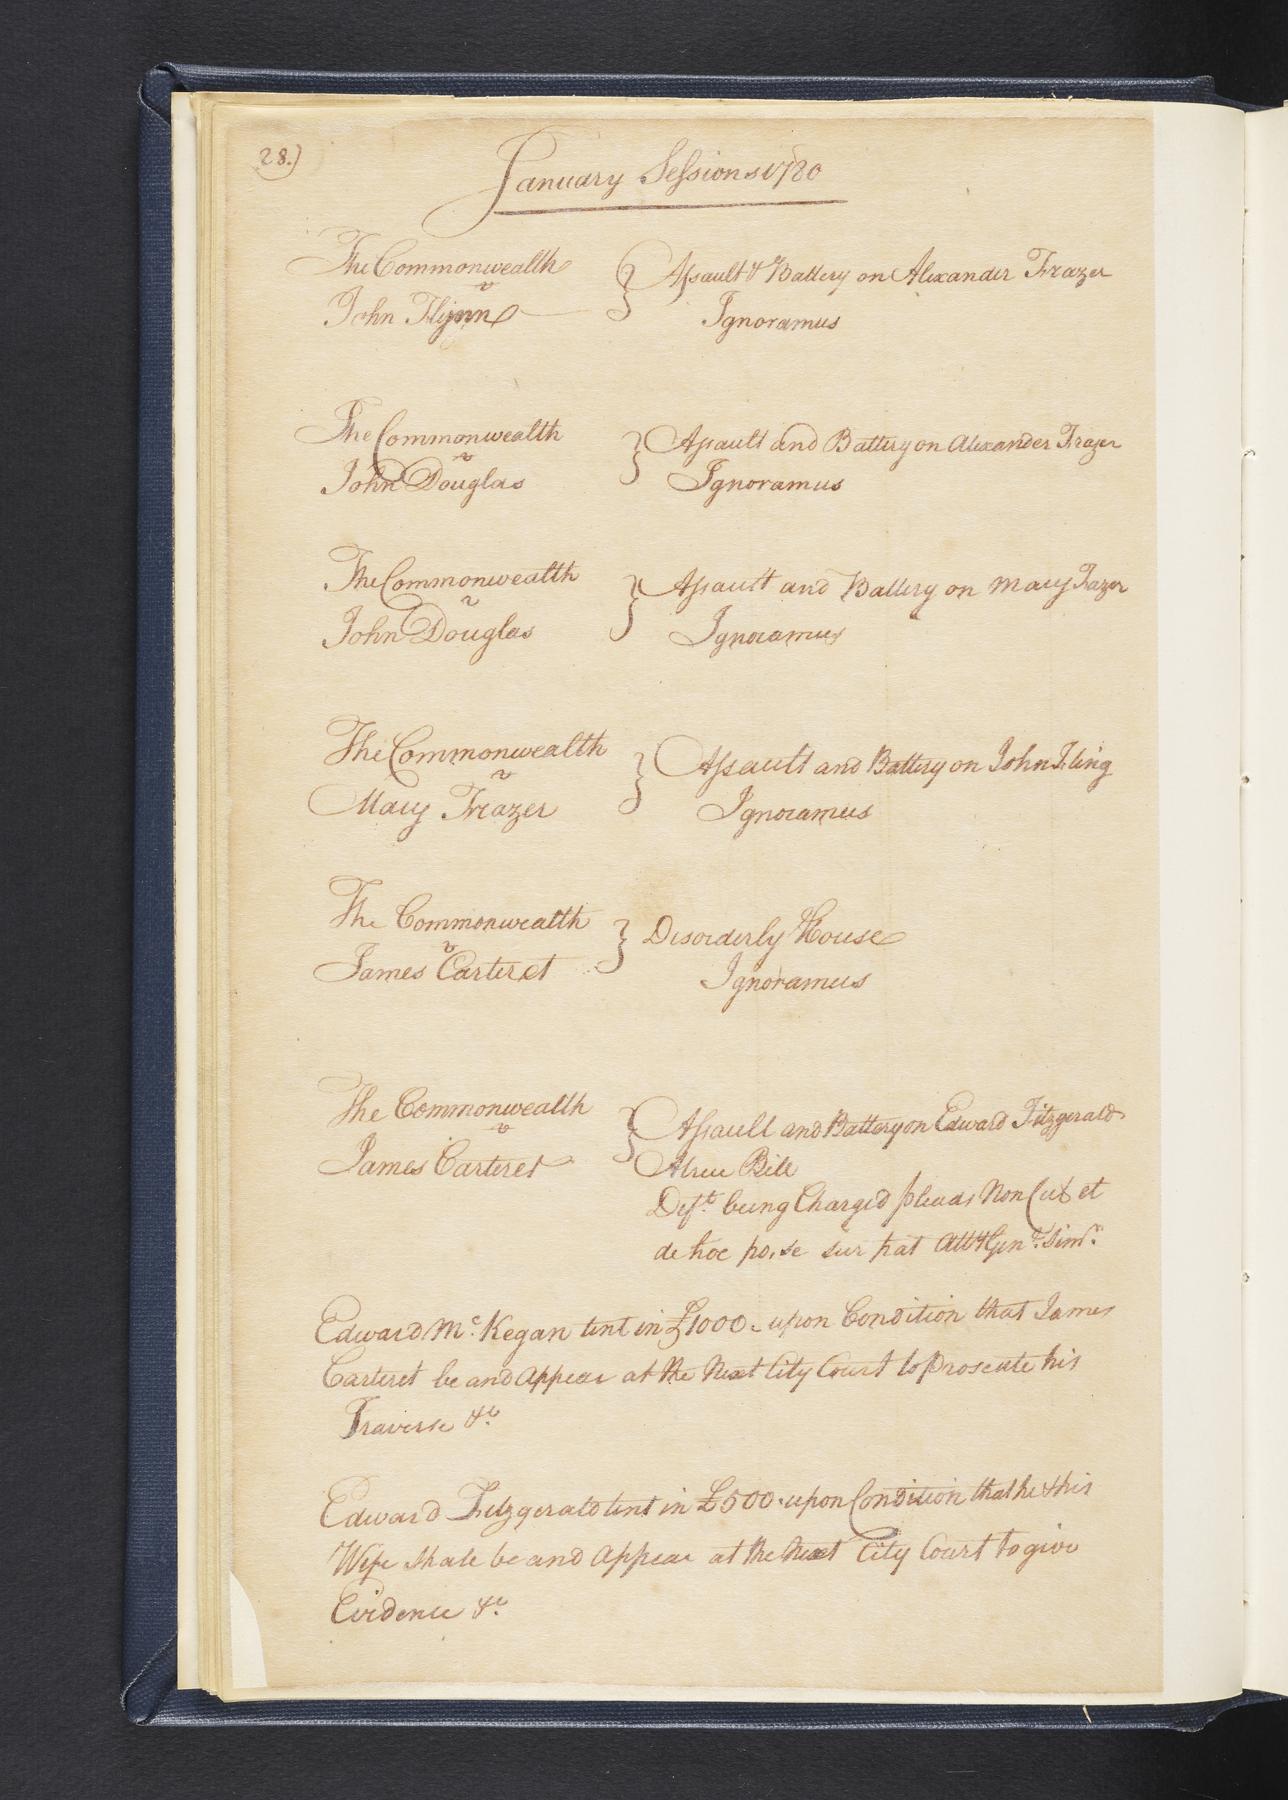 28.)
January Sessions 1780
The Commonwealth } Assault & Battery on Alexander Frazer
v
John Flynn Ignoramus
The Commonwealth } Assault and Battery on Alexander Frazer
v
John Douglas Ignoramus
The Commonwealth } Assault and Battery on Mary Frazer
v
John Douglas Ignoramus
The Commonwealth } Assault and Battery on John Fling
v
Mary Frazer Ignoramus
The Commonwealth } Disorderly House
v
James Carteret Ignoramus
The Commonwealth } Assault and Battery on Edward Fitzgerald
v
James Carteret A true Bill
Deft. being Charged pleads Non Cul et
de hoc po. se sur pat Atty Genl. Simr.
Edward Mc. Kegan tent in £1000 - upon Condition that James
Carteret be and Appear at the Next City Court to prosecute his
Traverse &c.
Edward Fitzgerald tent in £500 - upon Condition that he & his
Wife shall be and Appear at the Next City Court to give
Evidence &c.